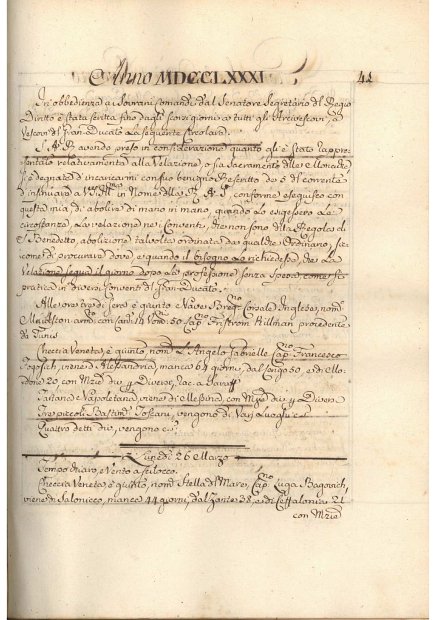 Anno MDCCLXXXI 42
In obbedienza a Sovrani Comandi dal Senatore Segretario del Regio
Diritto è stata scritta fino dagli scorsi giorni a tutti gli Arcivescovi, e
Vescovi del Gran-Ducato la seguente Circolare.
S. A. R. avendo preso in considerazione quanto gli è stato rappre-
sentato relativamente alla Velazione, o sia Sacramento delle Monache
si è degnata d'incaricarmi con suo benigno Rescritto de' del corrente
d'insinuare a in Nome della R. A. S., conforme eseguisco con
questa mia, di abolire di mano in mano, quando lo esigessero le
circostanze, la velazione ne' Conventi, che non sono della Regola di
S. Benedetto, abolizione talvolta ordinata da qualche Ordinario, sic-
come di procurare dove, e quando il bisogno lo richiedesse, che la
Velazione segua il giorno dopo la professione senza spesa, come si
pratica in diversi Conventi del Gran-Ducato.
Alle ore tre di jeri è giunto e Nave Corsale Inglese, nom
con Can 18 50 Cap Hillman procedente
da Tunis
Checcia Veneta, è giunto nom L'Angelo Gabrielle Cap Francesco
viene d'Alessandria, manca 64 giorni, dal Zongo 50, e di Mo-
done 20 con Mzie div e Diverse, loc. a
Tartana Napoletana, viene di Messina, con Mzie div e Diversi
Tre piccoli Bastim Toscani, vengono di Varj Luoghi cs
Quattro detti div, vengono cs
Lunedì 26 Marzo
Tempo chiaro, e Vento a Scilocco.
Checcia Veneta, è giunto, nom Stella del Mare, Cap Luga Bagovich,
viene di Salonicco, manca 44 giorni, dal Zante 38, e di Ceffalonia 21
con Mzie